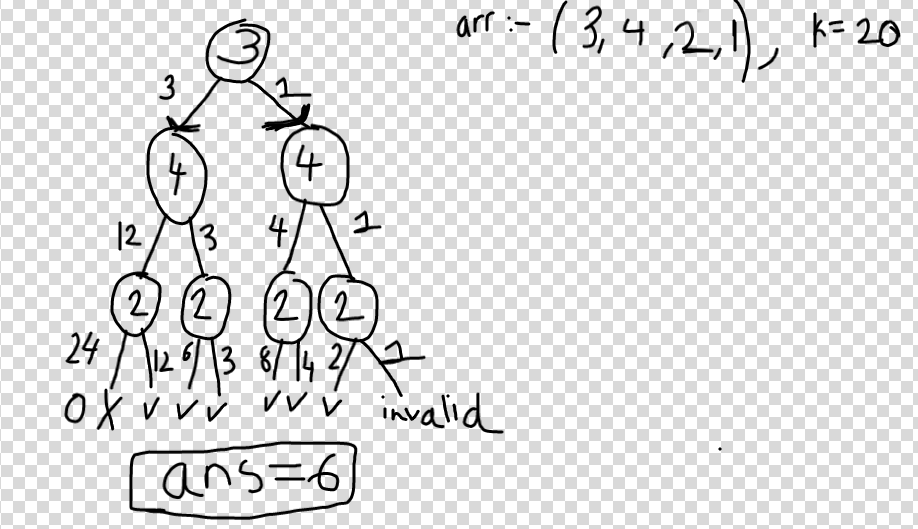 arr :- (3, 4, 2, 1), k = 20
3
3 1
4 4
12 3 4 1
2 2 2 2
24 12 6 3 8 4 2 1
0 X ✓ ✓ ✓ ✓ ✓ ✓ invalid
ans = 6